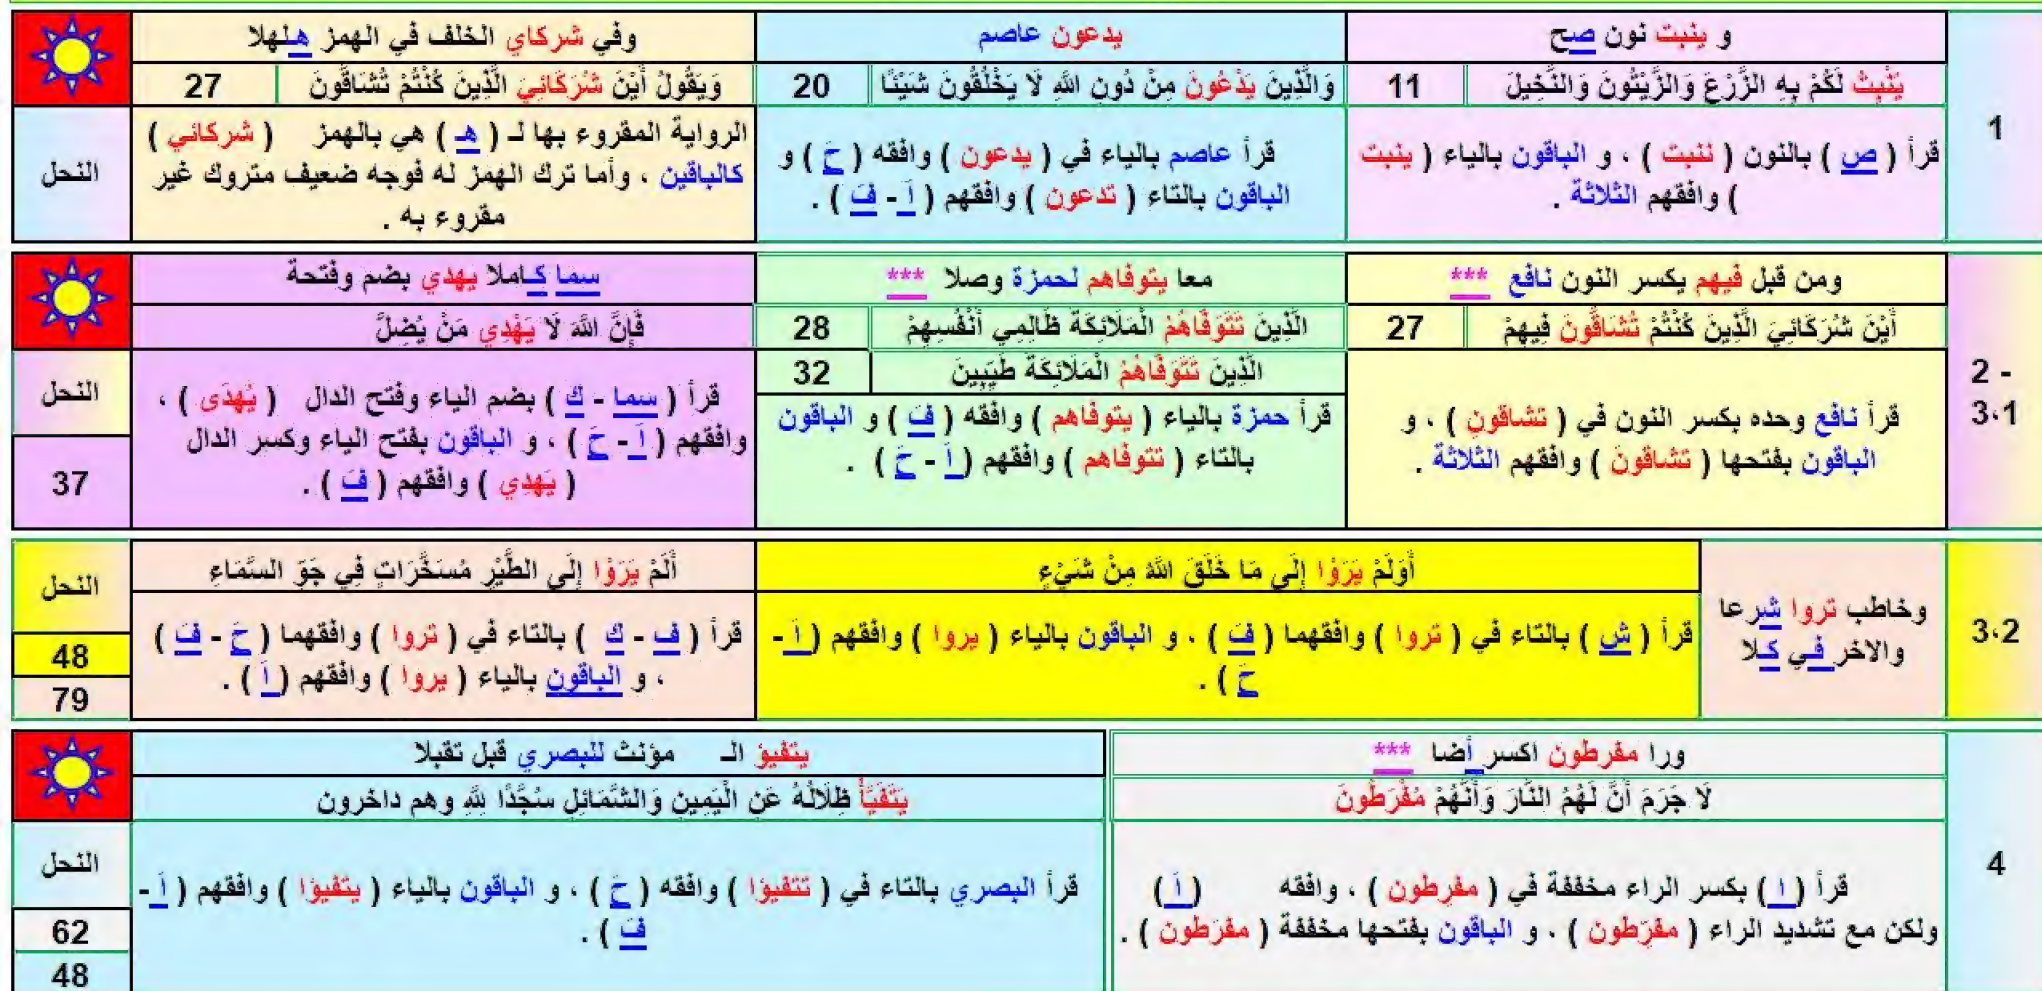 1
و ينبت نون صح
يُنْبِتُ لَكُمْ بِهِ الزَّرْعَ وَالزَّيْتُونَ وَالنَّخِيلَ
11
قرأ ( ص ) بالنون ( ننبت ) ، و الباقون بالياء ( ينبت
) وافقهم الثلاثة .
يدعون عاصم
وَالَّذِينَ يَدْعُونَ مِنْ دُونِ اللَّهِ لَا يَخْلُقُونَ شَيْئًا
20
قرأ عاصم بالياء في ( يدعون ) وافقه ( حَ ) و
الباقون بالتاء ( تدعون ) وافقهم ( أَ - فَ ) .
وفي شركاي الخلف في الهمز هلهلا
وَيَقُولُ أَيْنَ شُرَكَائِيَ الَّذِينَ كُنْتُمْ تُشَاقُّونَ
27
الرواية المقروء بها لـ ( هـ ) هي بالهمز ( شركائي )
كالباقين ، وأما ترك الهمز له فوجه ضعيف متروك غير
مقروء به .
النحل
2 -
3،1
ومن قبل فيهم يكسر النون نافع ***
أَيْنَ شُرَكَائِيَ الَّذِينَ كُنْتُمْ تُشَاقُّونَ فِيهِمْ
27
قرأ نافع وحده بكسر النون في ( تشاقونِ ) ، و
الباقون بفتحها ( تشاقونَ ) وافقهم الثلاثة .
معا يتوفاهم لحمزة وصلا ***
الَّذِينَ تَتَوَفَّاهُمُ الْمَلَائِكَةُ ظَالِمِي أَنْفُسِهِمْ
28
الَّذِينَ تَتَوَفَّاهُمُ الْمَلَائِكَةُ طَيِّبِينَ
32
قرأ حمزة بالياء ( يتوفاهم ) وافقه ( فَ ) و الباقون
بالتاء ( تتوفاهم ) وافقهم ( أَ - حَ ) .
سما كاملا يهدي بضم وفتحة
فَإِنَّ اللَّهَ لَا يَهْدِي مَنْ يُضِلُّ
قرأ ( سما - ك ) بضم الياء وفتح الدال ( يُهدَى ) ،
وافقهم ( أَ - حَ ) ، و الباقون بفتح الياء وكسر الدال
( يَهدِي ) وافقهم ( فَ ) .
النحل
37
3،2
وخاطب تروا شرعا
والاخر في كلا
أَوَلَمْ يَرَوْا إِلَى مَا خَلَقَ اللَّهُ مِنْ شَيْءٍ
قرأ ( ش ) بالتاء في ( تروا ) وافقهما ( فَ ) ، و الباقون بالياء ( يروا ) وافقهم ( أَ -
حَ ) .
أَلَمْ يَرَوْا إِلَى الطَّيْرِ مُسَخَّرَاتٍ فِي جَوِّ السَّمَاءِ
قرأ ( ف - ك ) بالتاء في ( تروا ) وافقهما ( حَ - فَ )
، و الباقون بالياء ( يروا ) وافقهم ( أَ ) .
النحل
48
79
4
ورا مفرطون اكسر أضا ***
لَا جَرَمَ أَنَّ لَهُمُ النَّارَ وَأَنَّهُمْ مُفْرَطُونَ
قرأ ( ا ) بكسر الراء مخففة في ( مفرِطون ) ، وافقه ( أَ )
ولكن مع تشديد الراء ( مفرِّطون ) ، و الباقون بفتحها مخففة ( مفرَطون ) .
يتفيؤ الـ مؤنث للبصري قبل تقبلا
يَتَفَيَّأُ ظِلَالُهُ عَنِ الْيَمِينِ وَالشَّمَائِلِ سُجَّدًا لِلَّهِ وهم داخرون
قرأ البصري بالتاء في ( تتفيؤا ) وافقه ( حَ ) ، و الباقون بالياء ( يتفيؤا ) وافقهم ( أَ -
فَ ) .
النحل
62
48